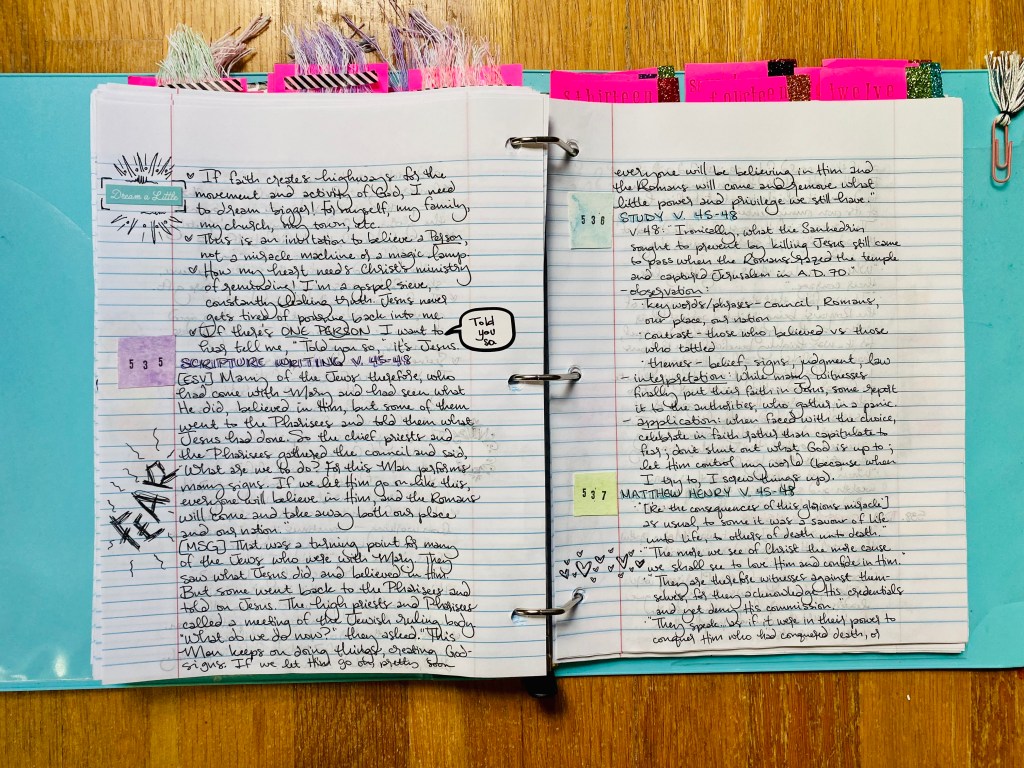 thirteen
fourteen
twelve
Dream a Little
♡ If faith creates highways for the
movement and activity of God, I need
to dream bigger! For myself, my family,
my church, my town, etc.
♡ This is an invitation to believe a Person,
not a miracle machine or a magic lamp.
♡ How my heart needs Christ's ministry
of rereading! I'm a gospel sieve,
constantly leaking truth. Jesus never
gets tired of pouring back into me.
♡ If there's ONE PERSON I want to
hear tell me, "Told you so," it's Jesus.
Told
you
so.
535
SCRIPTURE WRITING V. 45-48
[ESV] Many of the Jews therefore, who
had come with Mary and had seen what
He did, believed in Him, but some of them
went to the Pharisees and told them what
Jesus had done. So the chief priests and
the Pharisees gathered the council and said,
"What are we to do? For this Man performs
many signs. If we let Him go on like this,
everyone will believe in Him, and the Romans
will come and take away both our place
and our nation."
FEAR
[MSG] That was a turning point for many
of the Jews who were with Mary. They
saw what Jesus did, and believed in Him.
But some went back to the Pharisees and
told on Jesus. The high priests and Pharisees
called a meeting of the Jewish ruling body.
"What do we do now?" they asked. "This
Man keeps on doing things, creating God-
signs. If we let Him go on, pretty soon
everyone will be believing in Him and
the Romans will come and remove what
little power and privilege we still have."
536
STUDY V. 45-48
V. 48: "Ironically, what the Sanhedrin
sought to prevent by killing Jesus still came
to pass when the Romans razed the temple
and captured Jerusalem in A.D. 70."
- observation:
· key words/phrases - council, Romans,
our place, our nation
· contrast - those who believed vs those
who tattled
· themes - belief, signs, judgment, law
- interpretation: While many witnesses
finally put their faith in Jesus, some report
it to the authorities, who gather in a panic.
- application: when faced with the choice,
celebrate in faith rather than capitulate to
fear; don't shut out what God is up to;
let Him control my world (because when
I try to, I screw things up).
537
MATTHEW HENRY V. 45-48
"[Re the consequences of this glorious miracle]
as usual, to some it was a savour of life
unto life, to others of death unto death."
"The more we see of Christ the more cause
we shall see to love Him and confide in Him."
"They are therefore witnesses against them-
selves, for they acknowledge His credentials
and yet deny His commission."
"They speak as if it were in their power to
conquer Him who had conquered death, or